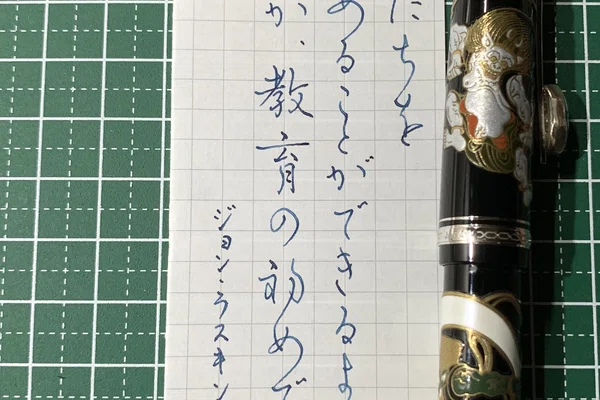 たちを
めることができるま
が、教育の初めで
ジョン・ラスキン